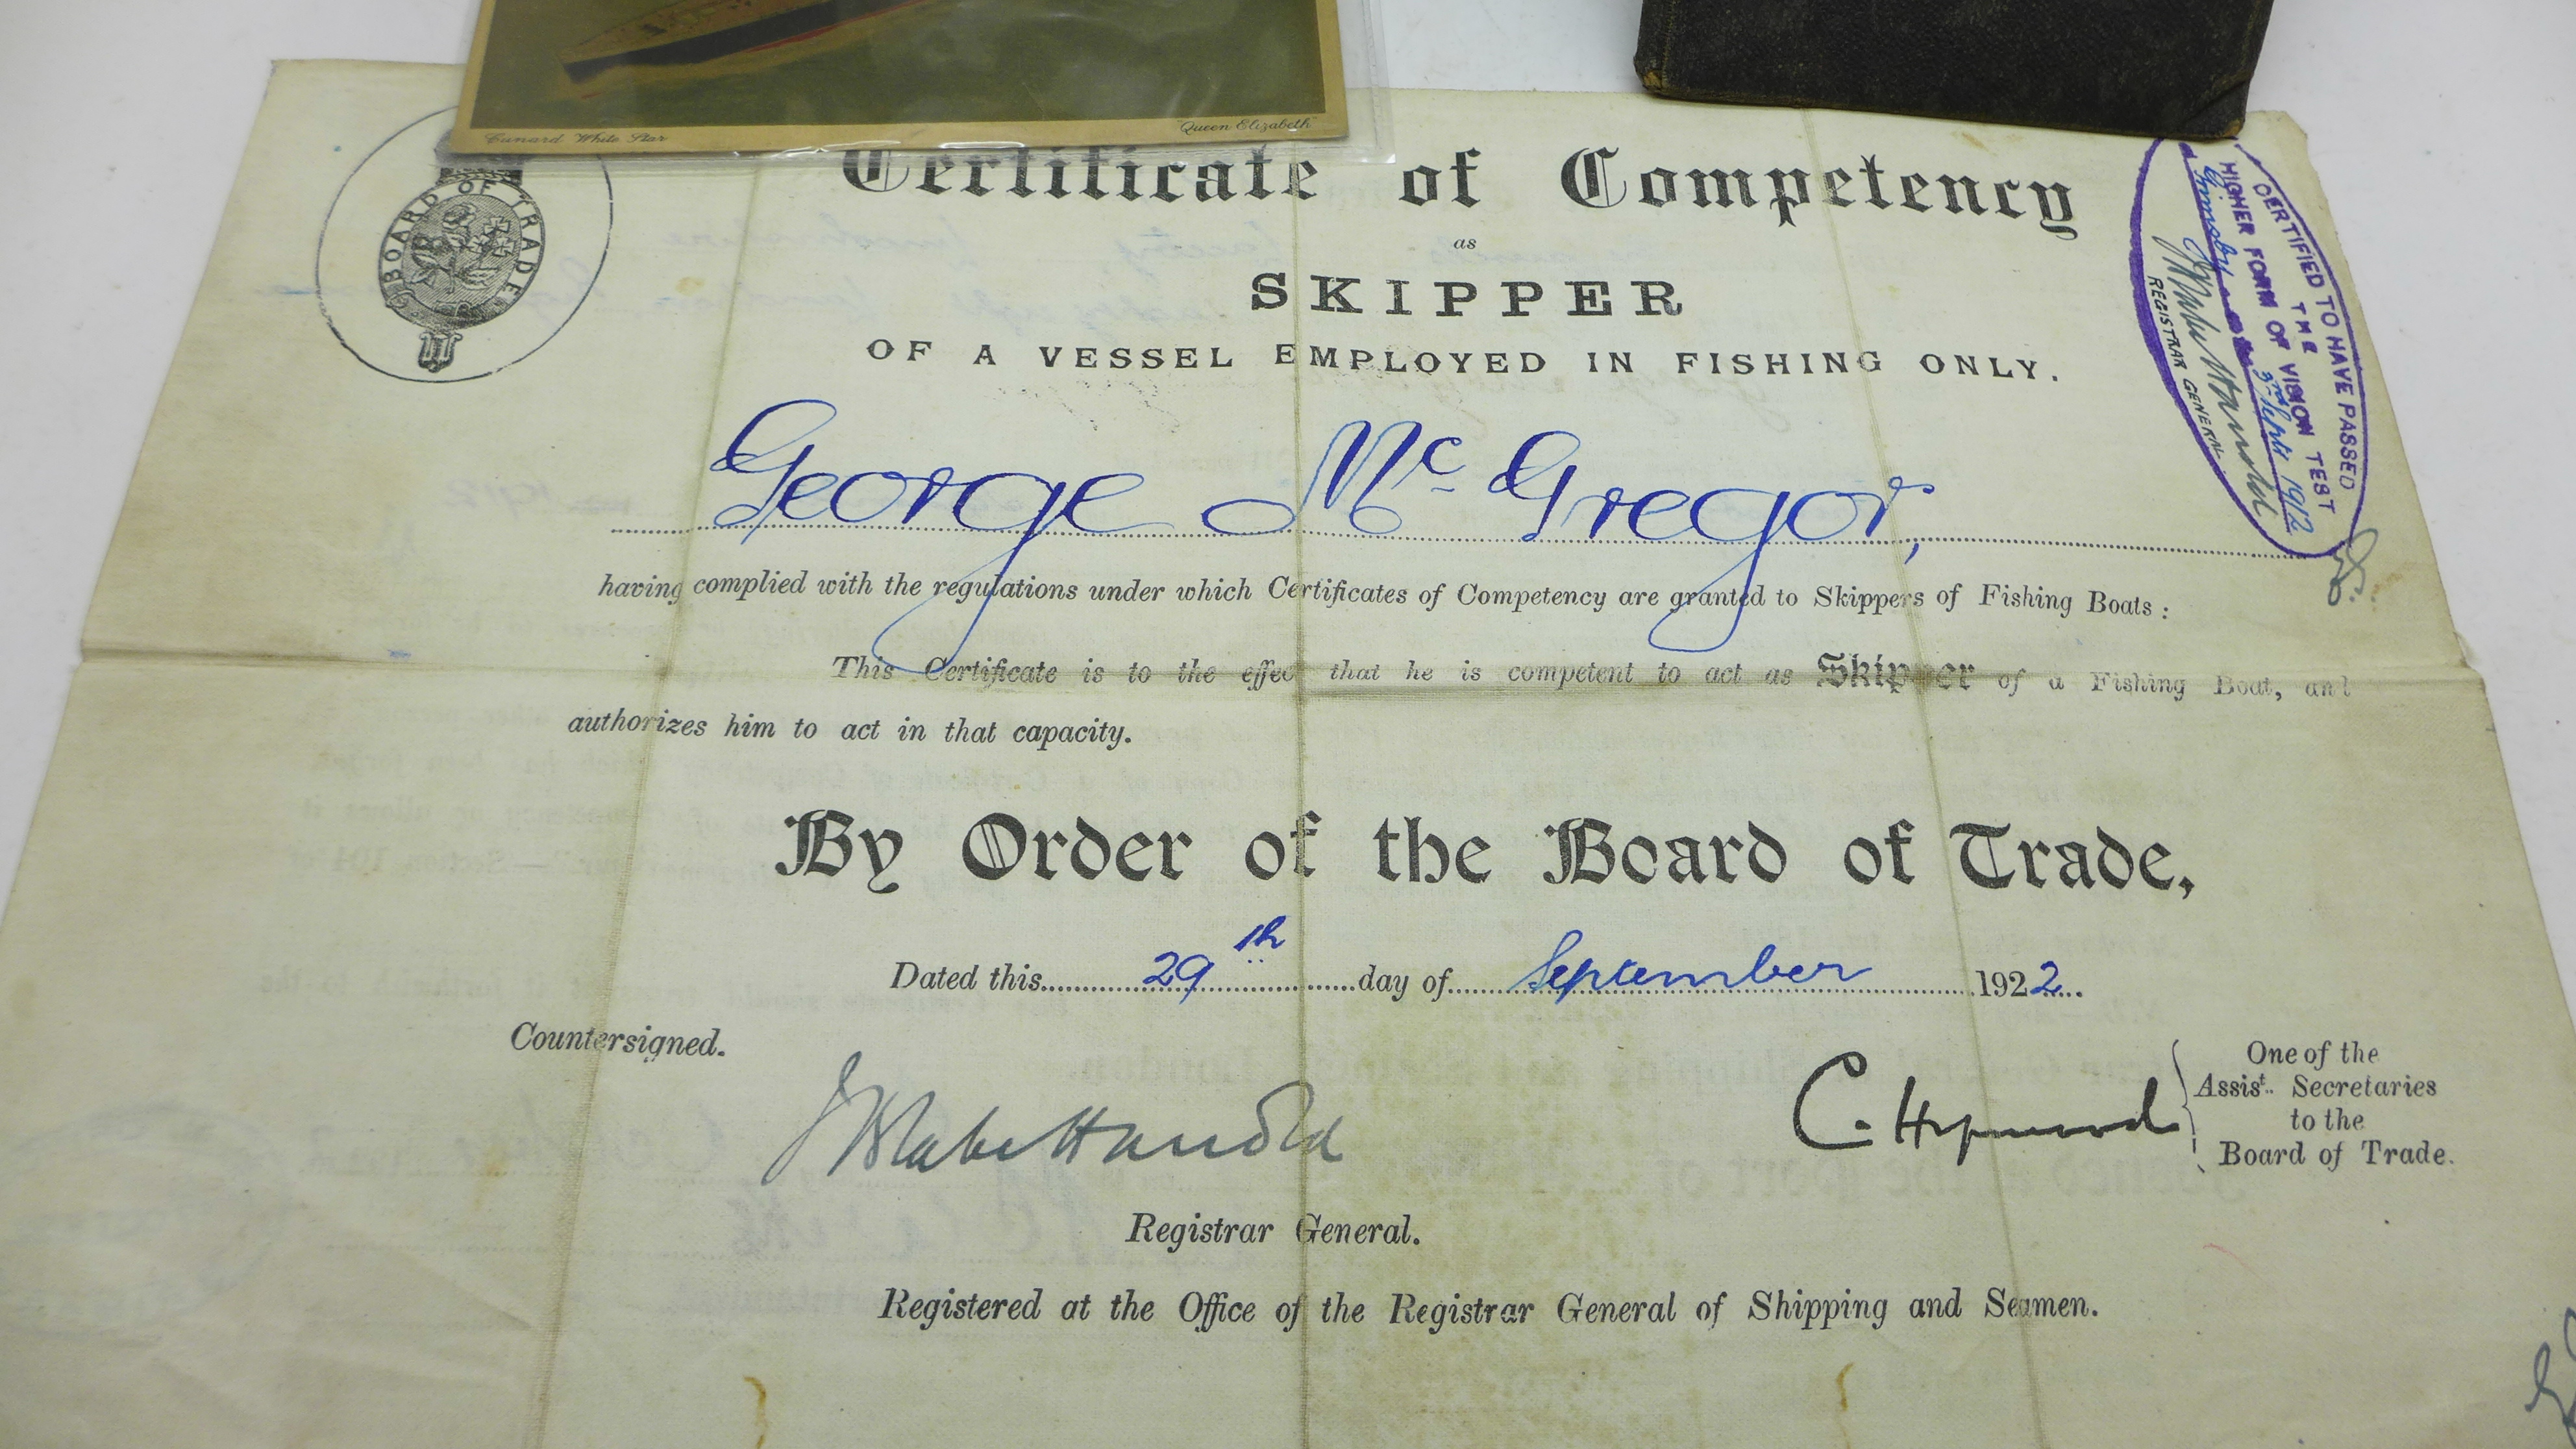 Cunard White Star
"Queen Elizabeth"
BOARD OF TRADE
Certificate of Competency
as
SKIPPER
OF A VESSEL EMPLOYED IN FISHING ONLY.
CERTIFIED TO HAVE PASSED
THE
HIGHER FORM OF VISION TEST
Grimsby 1912
REGISTRAR GENERAL
George Mc Gregor,
having complied with the regulations under which Certificates of Competency are granted to Skippers of Fishing Boats :
This Certificate is to the effect that he is competent to act as Skipper of a Fishing Boat, and
authorizes him to act in that capacity.
By Order of the Board of Trade,
Dated this 29th day of September 1922
Countersigned.
One of the
Assist. Secretaries
to the
Board of Trade.
Registrar General.
Registered at the Office of the Registrar General of Shipping and Seamen.